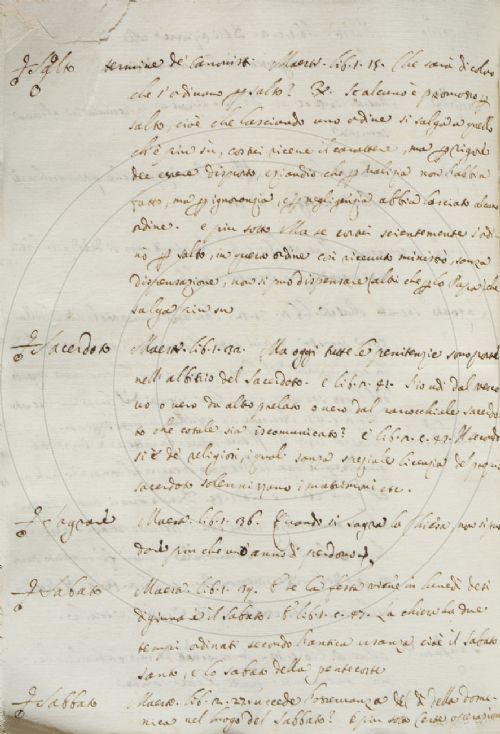 Salto termine de' Canonisti. Maestr. lib. 1. 15. Che sarà di coloro
che s'ordinano per salto? R. Se alcuno è promosso per
salto, cioè che lasciando uno ordine si salga a quello
ch'è più su, costui riceve il carattere, ma per rigore
dee essere disposto, eziandio che per malizia non l'abbia
fatto, ma per ignoranzia, e per negligenzia abbia lasciato alcuno
ordine. e più sotto Ma se costui scientemente s'ordi
nò per salto, in questo ordine così ricevuto ministrò, sanza
dispensazione, non si può dispensare (altri che per lo Papa) che
salga più su
Sacerdoto Maestr. lib. 1. 32. Ma oggi tutte le penitenzie sono poste
nell'albitrio del Sacerdoto. e lib. 2. 41. S'io udì dal vesco
vo o vero da alto prelato o vero dal parocchiale sacerdo
to che cotale sia iscomunicato? e lib. 2. c. 47.
si è de' religiosi, i quali sanza speziale licenzia del proprio
sacerdoto solennizzano i matrimoni etc.
Sagrare Maestr. lib. 1. 36. Quando si sagra la Chiesa, non si può
dare più che uno anno di perdono
Sabato Maestr. lib. 1. 39. E se la festa viene in lunedì
digiuna è il sabato E lib. 1. c. 47. La chiesa ha due
tempi ordinati secondo l'antica usanza cioè il sabato
santo, e lo sabato della pentecoste
Sabbato Maestr. lib. 2. 27. succede l'osservanza del dì della dome
nica nel luogo del Sabbato? e più sotto